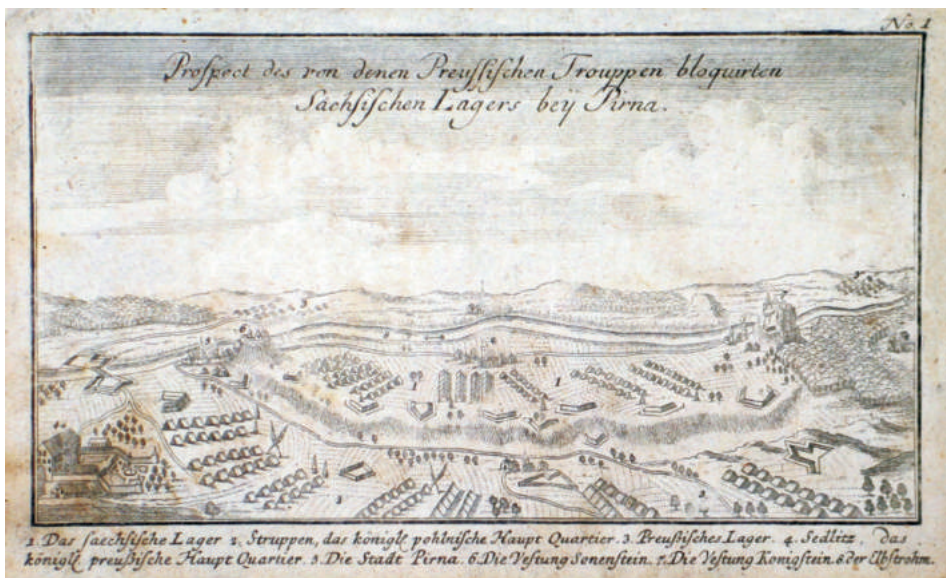 No. 1
Prospect des von denen Preussischen Trouppen bloquirten
Sächsischen Lagers beÿ Pirna.
1. Das saechsische Lager 2. Struppen, das königl. pohlnische Haupt Quartier. 3. Preußisches Lager. 4. Sedlitz, das
königl. preußische Haupt Quartier. 5. Die Stadt Pirna. 6. Die Vestung Sonenstein. 7. Die Vestung Konigstein. 8. der Elbstrohm.